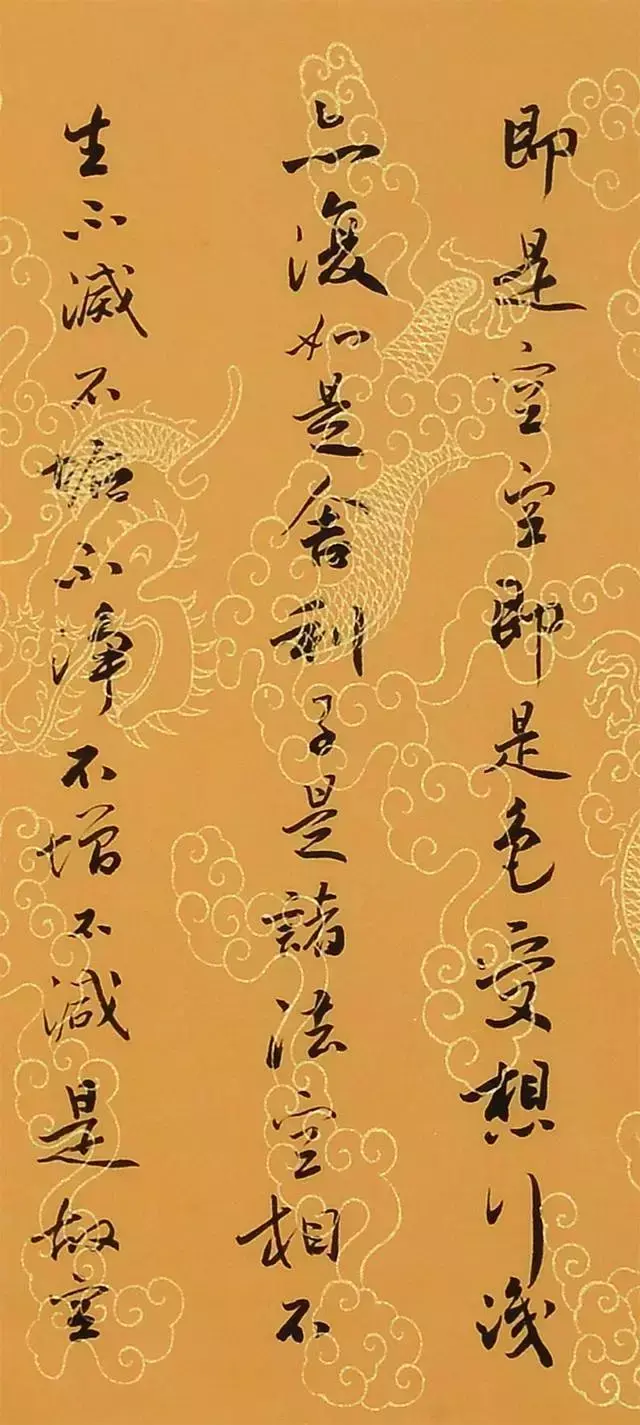 即是空空即是色受想行識
亦復如是舍利子是諸法空相不
生不滅不垢不淨不增不減是故空